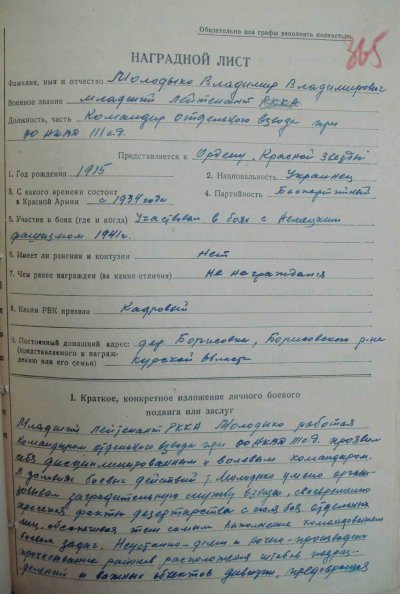 Обязательно все графы заполнять полностью.
365
НАГРАДНОЙ ЛИСТ
Фамилия, имя и отчество Молодыко Владимир Владимирович
Военное звание младший лейтенант РККА
Должность, часть Командир отдельного взвода при
ОО НКВД III с.д.
Представляется к Ордену „Красной Звезды"
1. Год рождения 1915
2. Национальность Украинец
3. С какого времени состоит
в Красной Армии с 1934 года
4. Партийность Беспартийный
5. Участие в боях (где и когда) Участвовал в боях с Немецким
фашизмом 1941 г.
6. Имеет ли ранения и контузии Нет
7. Чем ранее награжден (за какие отличия) Не награждался
8. Каким РВК призван Кадровый
9. Постоянный домашний адрес: дер. Борисовка, Борисовского р-на
(представляемого к награж-
дению или его семьи) Курской области
I. Краткое, конкретное изложение личного боевого
подвига или заслуг
Младший лейтенант РККА Молодыко работая
командиром отдельного взвода при ОО НКВД III с.д. проявил
себя дисциплинированным и волевым командиром.
В условиях боевых действий т. Молодыко умело органи-
зовывал заградительную службу взвода, своевременно
пресекая факты дезертирства с поля боя отдельных
лиц, обеспечивая тем самым выполнение командованием
боевых задач. Неустанно днем и ночью производил
прочесывание районов расположения штабов подраз-
делений и важных объектов дивизии, предотвращая